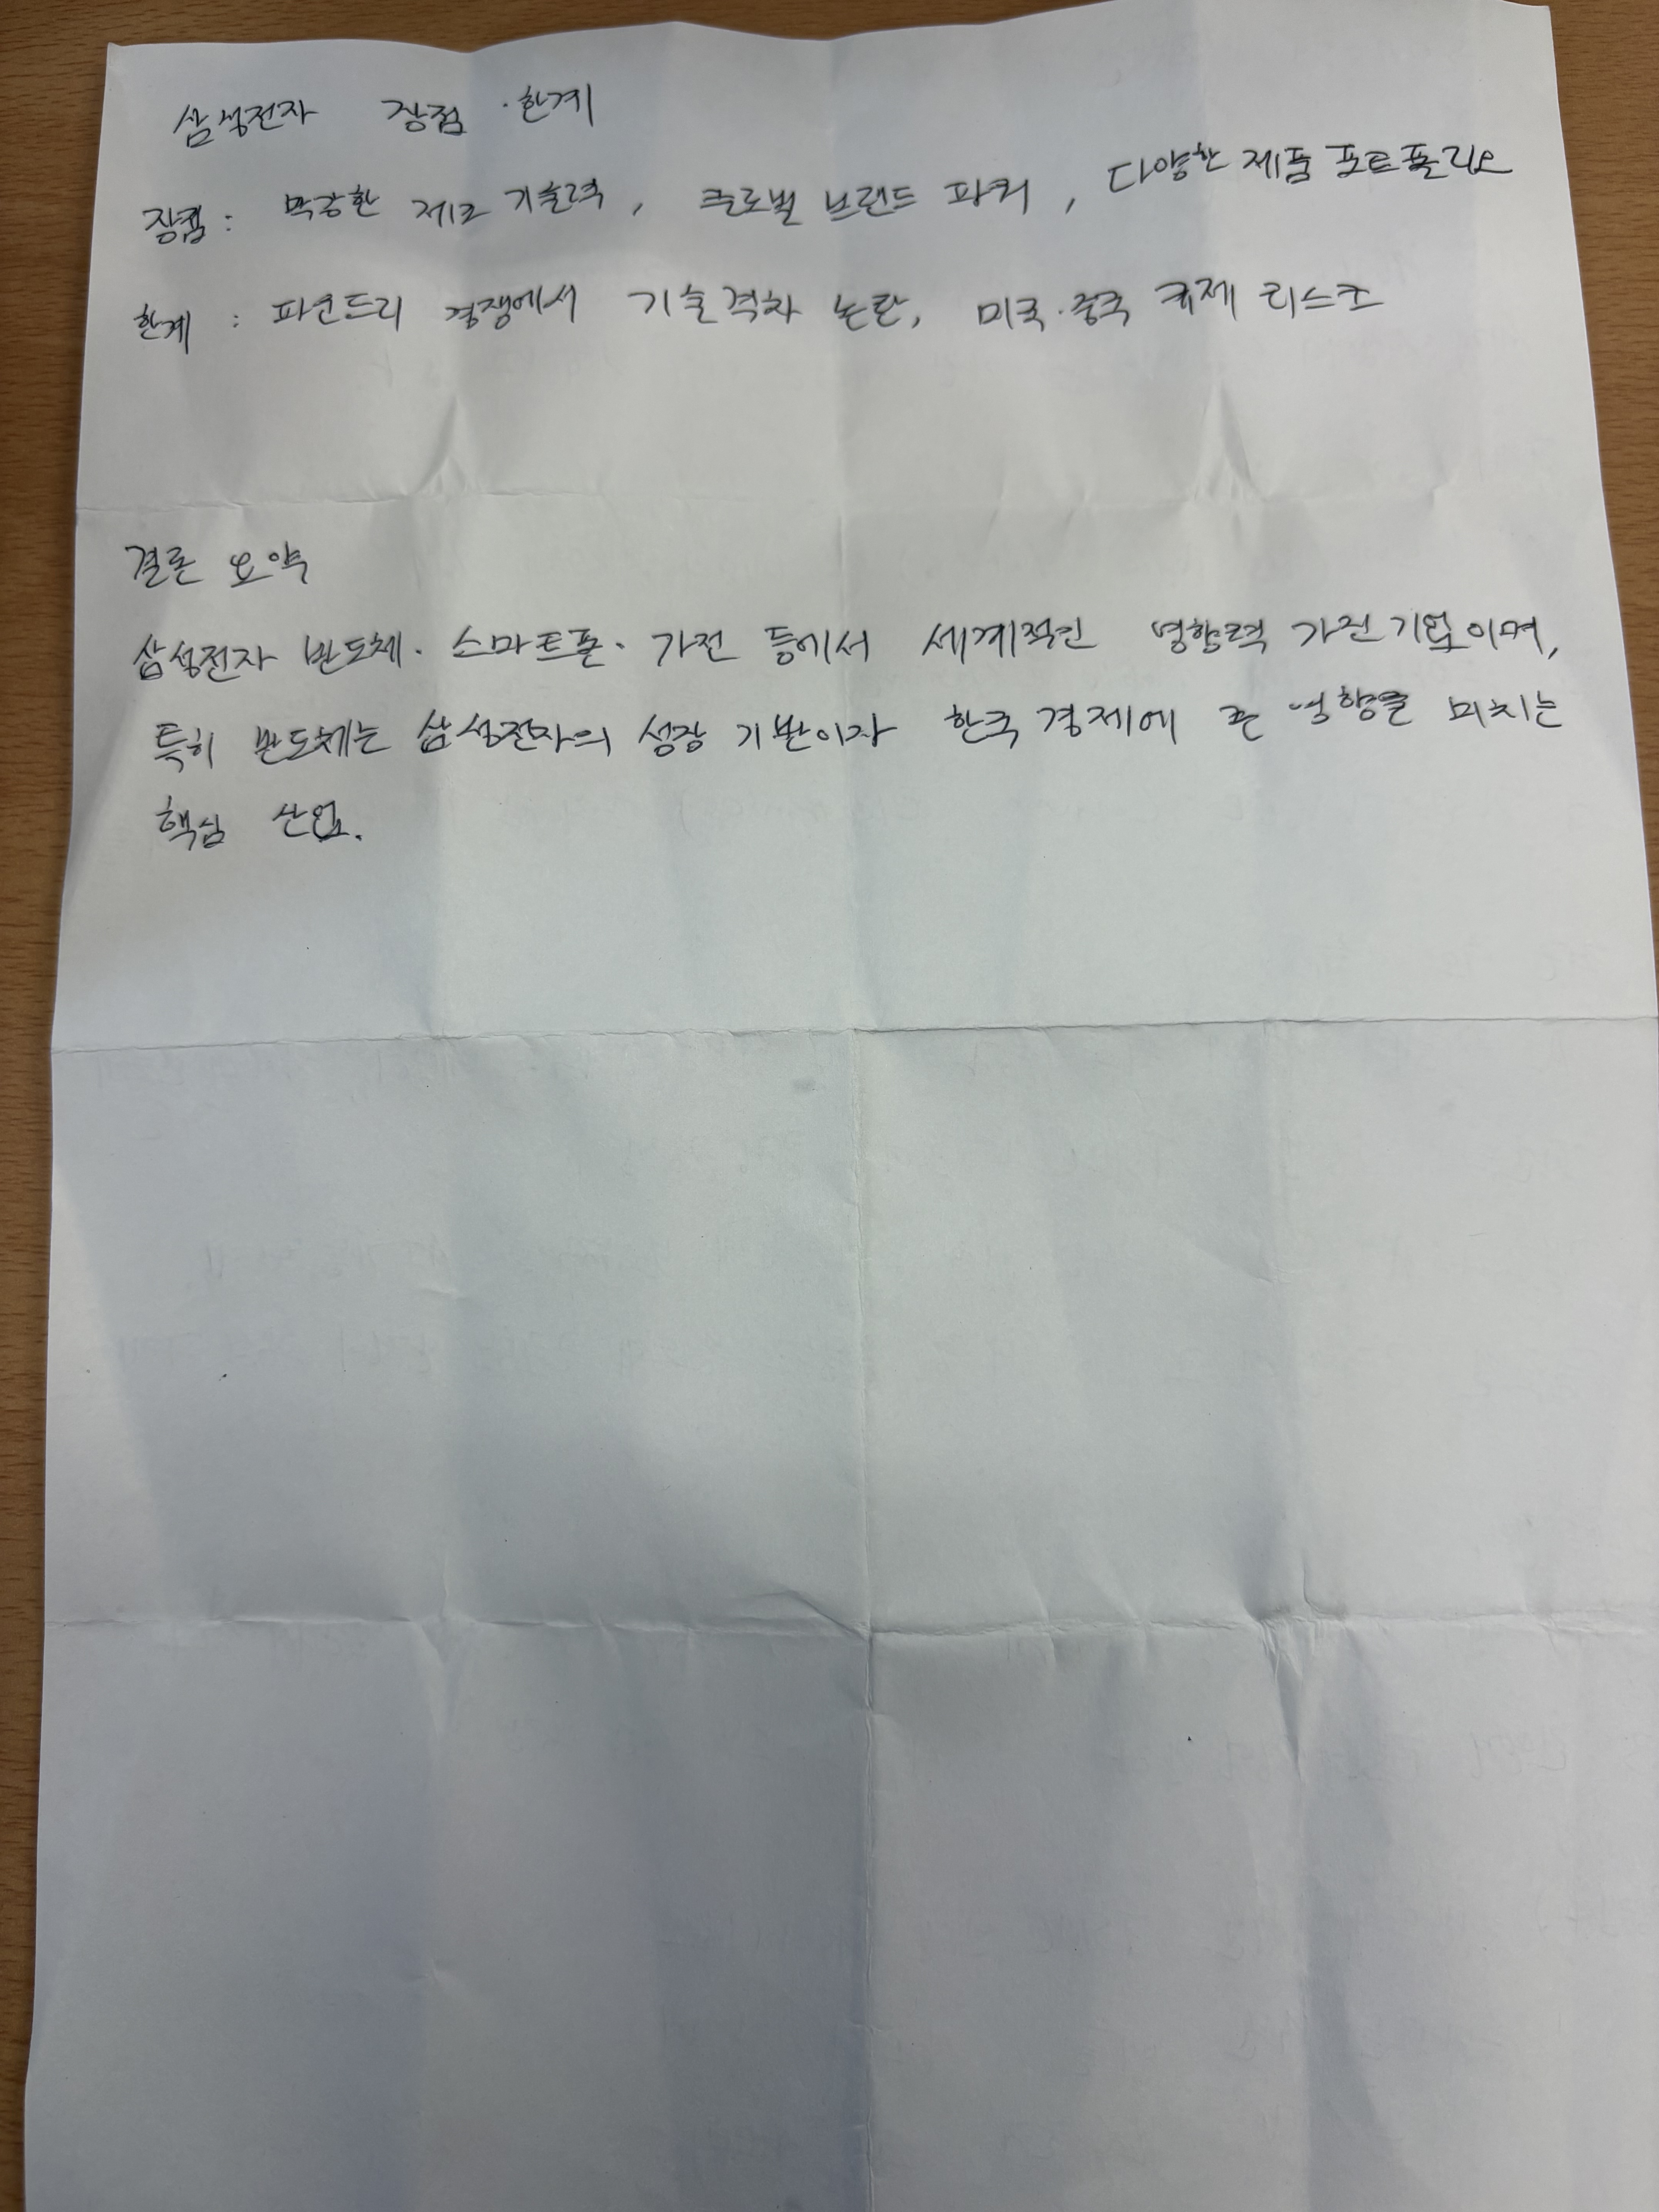 삼성전자 장점·한계
장점: 막강한 제조 기술력, 글로벌 브랜드 파워, 다양한 제품 포트폴리오
한계 : 파운드리 경쟁에서 기술격차 논란, 미국·중국 규제 리스크
결론 요약
삼성전자 반도체·스마트폰·가전 등에서 세계적인 영향력 가진 기업이며,
특히 반도체는 삼성전자의 성장 기반이자 한국 경제에 큰 영향을 미치는
핵심 산업.